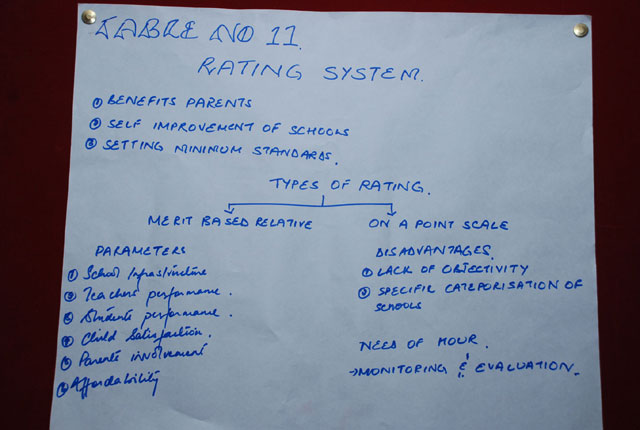 TABLE NO 11.
RATING SYSTEM.
① BENEFITS PARENTS
② SELF IMPROVEMENT OF SCHOOLS
③ SETTING MINIMUM STANDARDS.
TYPES OF RATING.
MERIT BASED RELATIVE
PARAMETERS
① School Infrastructure
② Teachers performance.
③ Students performance.
④ Child Satisfaction.
⑤ Parents involvement
⑥ Affordability
ON A POINT SCALE
DISADVANTAGES.
① LACK OF OBJECTIVITY
② SPECIFIC CATEGORISATION OF
SCHOOLS
NEED OF HOUR.
→MONITORING & EVALUATION.